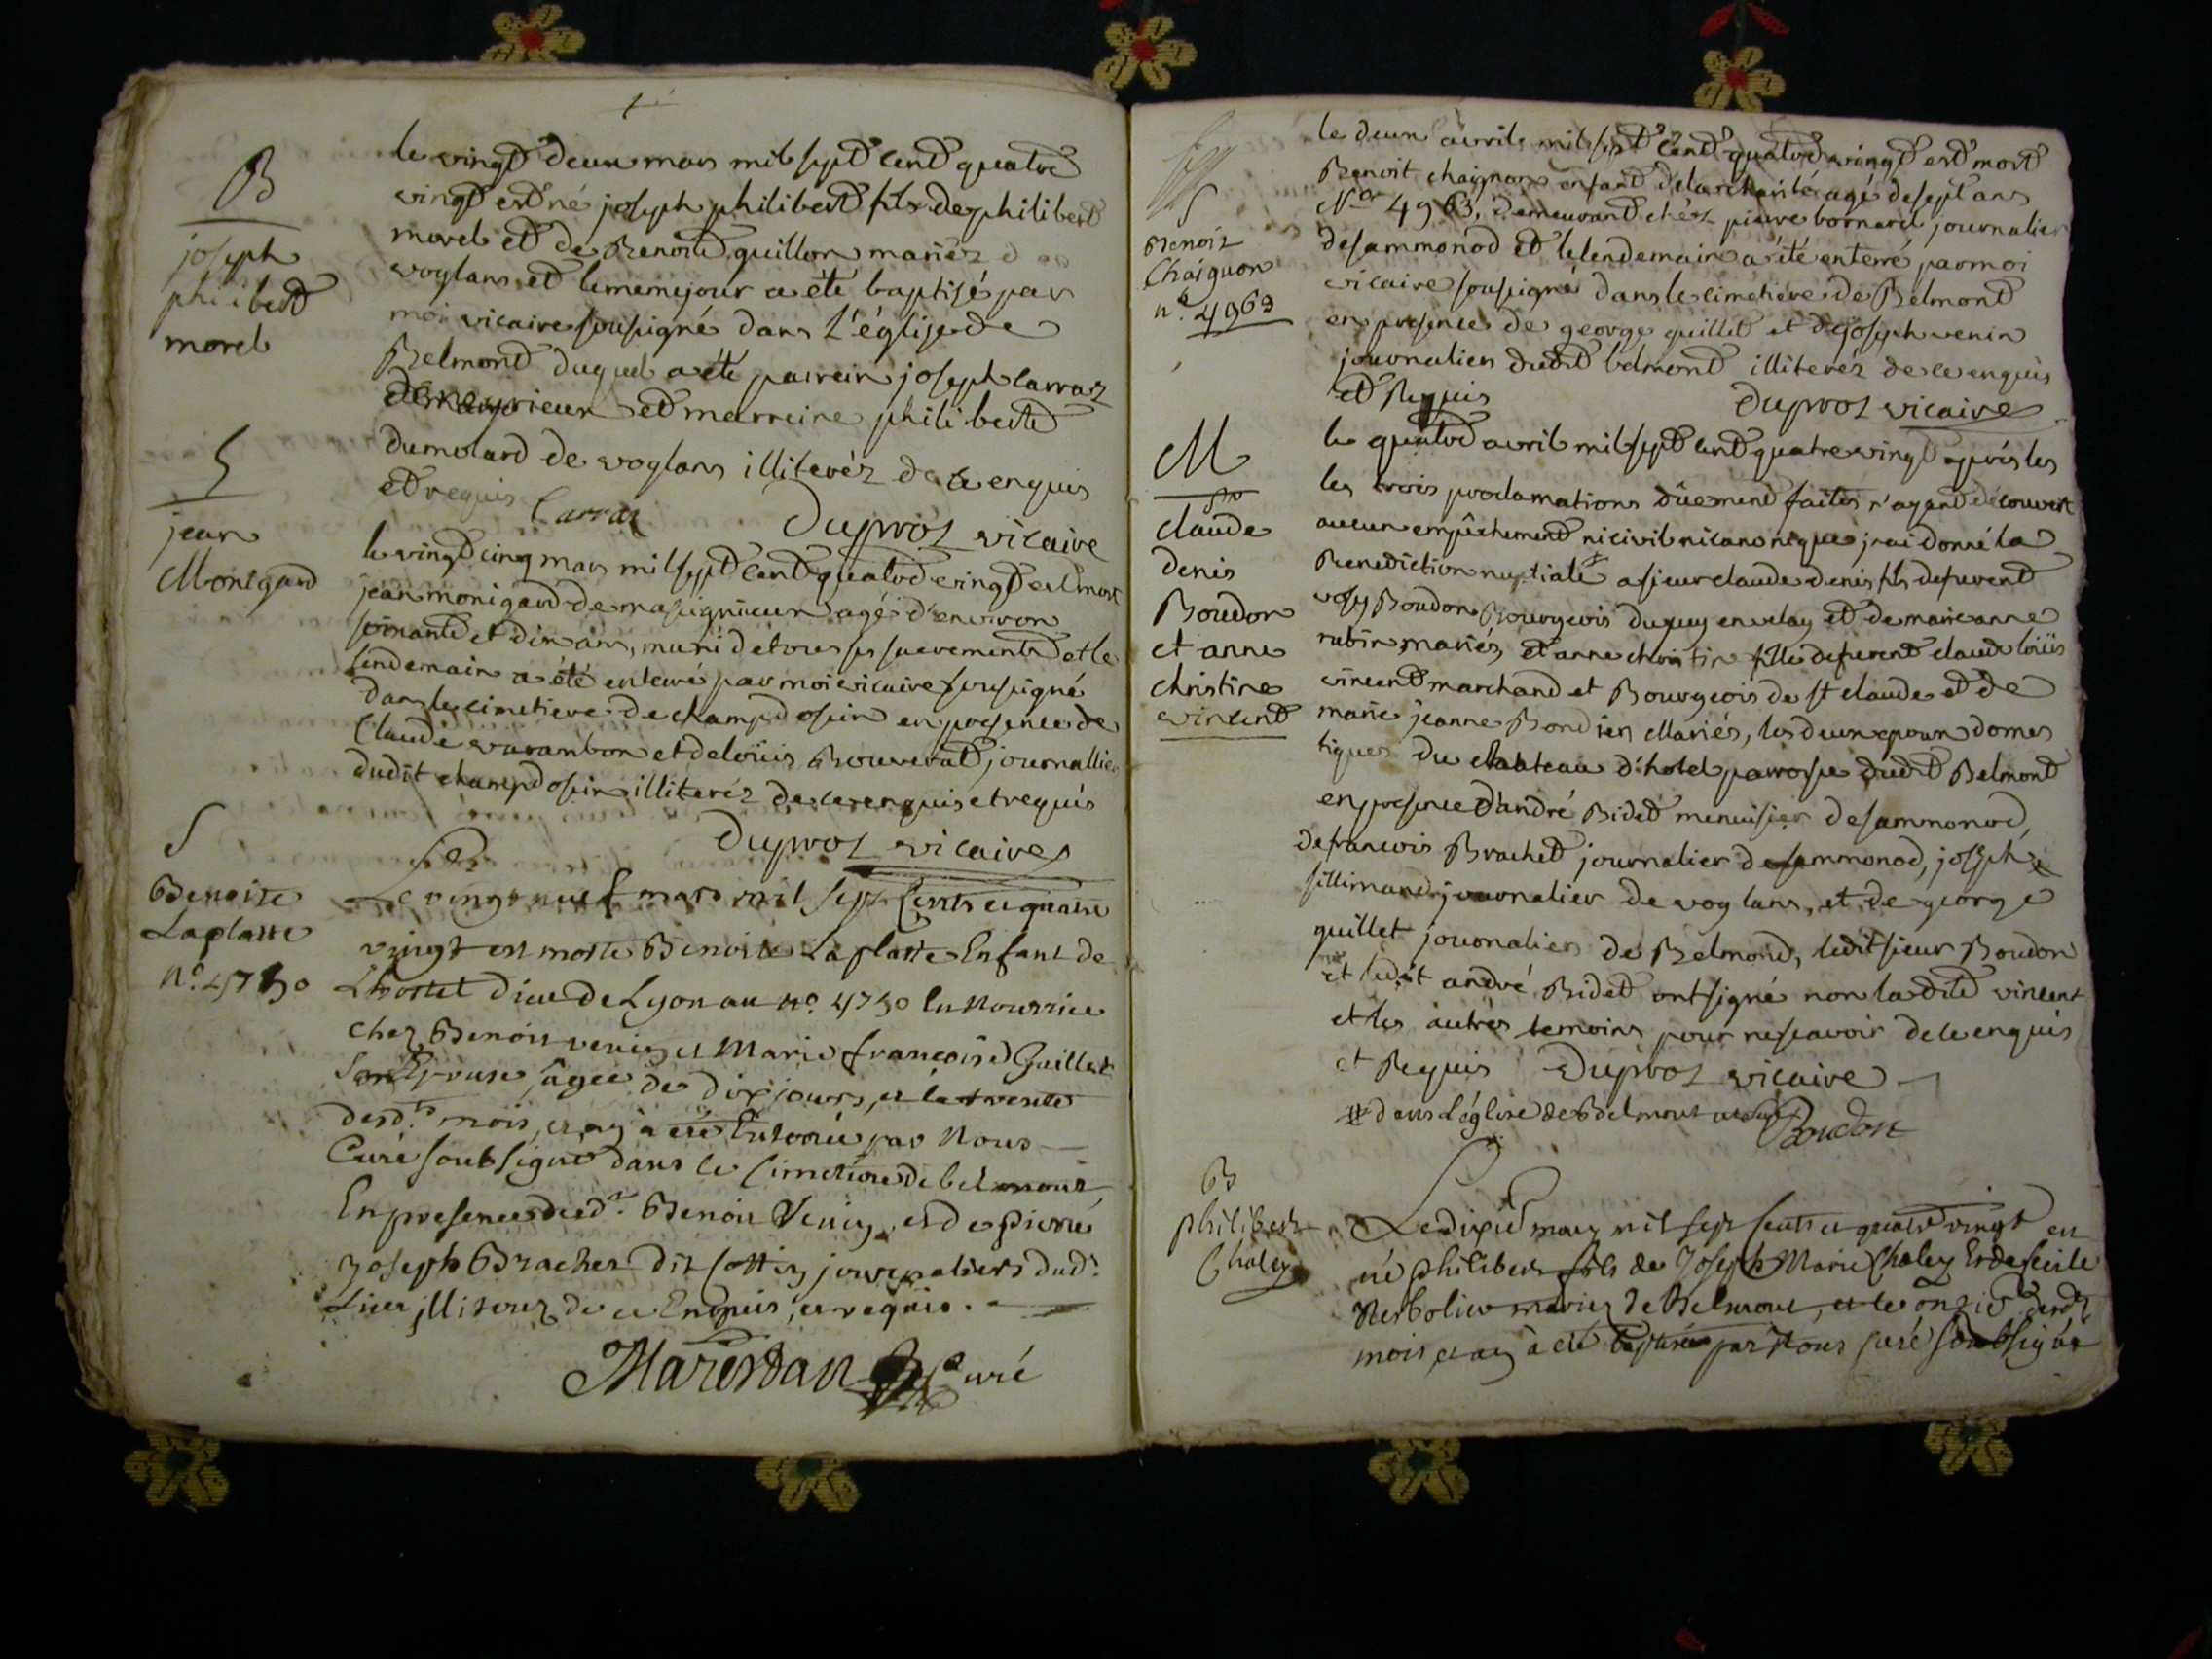 B
joseph
philibert
morel
le vingt deux mars mil sept cent quatre
vingt est né joseph philibert fils de philibert
morel et de Benoite guillon mariéz d
voglans et le meme jour a été baptisé par
moi vicaire sousigné dans l'église de
Belmont duquel a été parrain joseph carraz
et marreine philiberte
dumolard de voglans illiteréz de ce enquis
et requis Carraz Duproz vicaire
S
jean
Monigard
le vingt cinq mars mil sept cent quatre vingt est mort
jean monigard de massignieux agé d'environ
soixante et dix ans, muni de tous ses sacrements et le
lendemain a été enterré par moi vicaire sousigné
dans le cimetiere de champdosin en presence de
Claude varambon et de loüis Bouverat journallier
dudit champdosin illiteréz de ce enquis et requis
Duproz vicaire
S
Benoite
Laplatte
n.° 4750
Le vingt neuf mars mil sept cents et quatre
vingt est morte Benoite Laplatte Enfant de
Lhostel dieu de Lyon au n.° 4750 En Nourrice
chez Benoit venin et Marie françoise Guillet
Son Epouse, âgée de dix jours, et le trente
desd.ts mois, et an à été Enterrée par Nous
Curé soubsigné dans le Cimetiere de belmont
En presence dud.t Benoit Venin, et de pierre
Joseph Brachet dit Cottin journaliers dud.t
Lieu jlliterez de ce Enquis, et requis.
Marestan Curé
S
Benoit
Chaignon
n.° 4963
le deux avril mil sept cent quatre vingt est mort
Benoit chaignon enfant de la charité agé de sept ans
N.ro 4963, demeurant chéz pierre bornard journalier
de sammonod et le lendemain a été enterré par moi
vicaire sousigné dans le cimetiere de Belmont
en presence de george guillet et de joseph venin
journalier dudit belmont illiteréz de ce enquis
et Requis Duproz vicaire
M
claude
denis
Boudon
et anne
christine
vincent
le quatre avril mil sept cent quatre vingt après les
les trois proclamations dûement faites n'ayant découvert
aucun empêchement ni civil ni canonique j'ai donné la
Benediction nuptiale # a sieur claude denis fils de fu vent
Boudon Bourgeois du puy en velay et de marie anne
rubin mariés, et anne christine fille de fu vent claude loüis
vincent marchand et Bourgeois de st claude et de
marie jeanne Bondier Mariés, les deux epoux domes
tiques du chateau d'hotel paroisse dudit Belmont
en presence d'andré Bidet menuisier de sammonod,
de francois Brachet journalier de sammonod, joseph
sillimand journalier de voglans, et de george
guillet journalier de Belmond, ledit sieur Boudon
et ledit andré Bidet ont signé non ladite vincent
et les autres temoins pour ne scavoir de ce enquis
et Requis Duproz vicaire
# dans L'église de Belmont
Boudon
B
philibert
Chaley
Le dixie may mil sept cents et quatre vingt est
né philibert fils de Joseph Marie Chaley Et de
mariez de Belmont, et le onzie desd.ts
mois, et an à été baptisé par Nous curé soubsigné